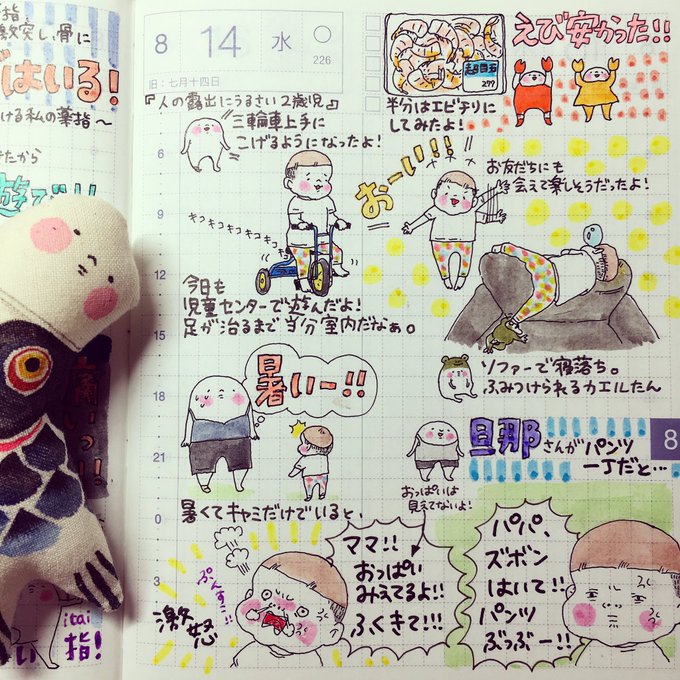 指、
激突し、骨に
はいる!
ける私の薬指〜
きたから
遊び!!
8 14 水
226
旧：七月十四日
『人の露出にうるさい2歳児』
三輪車上手に
こげるようになったよ!
6
9
12
15
18
21
0
3
キコキコキコキコキコ
今日も
児童センターで遊んだよ!
足が治るまで当分室内だなぁ。
277
えび安かった!!
半分はエビチリに
してみたよ!
おーい!!
お友だちにも
会えて楽しそうだったよ!
ソファーで寝落ち。
ふみつけられるカエルたん
暑いー!!
暑くてキャミだけでいると、
おっぱいは
見えてないよ!
旦那さんがパンツ
一丁だと…
8
激怒
ぷんすこ!!
ママ!!
おっぱい
みえてるよ!!
ふくきて!!!
パパ、
ズボン
はいて!!
パンツ
ぶっぶー!!
itai
指!